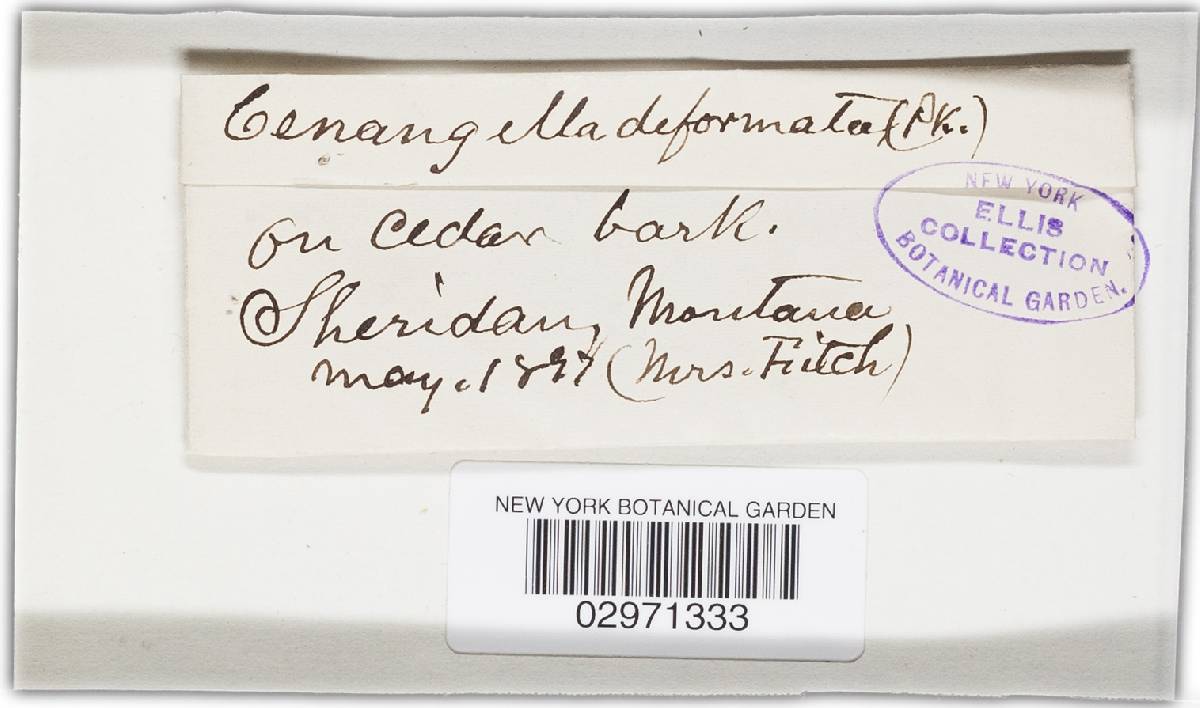 Cenangella deformata (Pk.)
on cedar bark.
Sheridan, Montana
May. 1897 (Mrs. Fitch)
NEW YORK
ELLIS
COLLECTION
BOTANICAL GARDEN.
NEW YORK BOTANICAL GARDEN
02971333